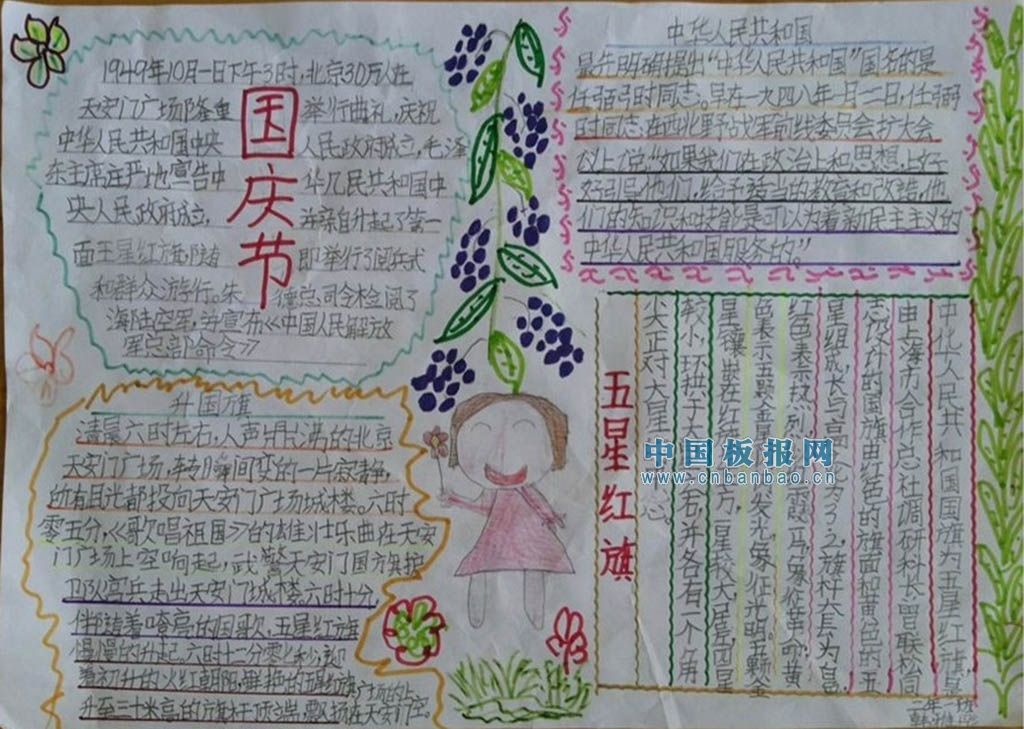 国庆节
1949年10月一日下午3时,北京30万人在
天安门广场隆重 举行典礼,庆祝
中华人民共和国中央 人民政府成立,毛泽
东主席庄严地宣告中 华人民共和国中
央人民政府成立, 并亲自升起了第一
面五星红旗,随 即举行了阅兵式
和群众游行。朱 德总司令检阅了
海陆空军,并宣布《中国人民解放
军总部命令》
升国旗
清晨六时左右,人声的北京
天安门广场,瞬间变的一片寂静,
所有目光都投向天安门广场城楼。六时
零五分,《歌唱祖国》的雄壮乐曲在天安
门广场上空响起,武警天安门国旗护
卫队官兵走出天安门城楼六时十分,
伴随着嘹亮的国歌,五星红旗
慢慢的升起,六时十一分零七秒,
着初升的火红朝阳,广场的上
升至三十米高的旗杆顶端,飘扬在天安门
中华人民共和国
最先明确提出“中华人民共和国”国务的是
任弼时同志。早在一九四八年一月二日,任弼
时同志在西北野战军前线委员会扩大会
议上说“如果我们在政治上和思想上好
好引导他们,给予适当的教育和改造,他
们的知识和技能是可以为着新民主主义的
中华人民共和国服务的”。
五星红旗
中华人民共和国国旗为五星红旗,是
由上海市合作总社调研科长曾联松同
志设计的国旗由红色的旗面和黄色的五
星组成,长与高之比为3:2,旗杆套为白
红色表示热烈,霞马象征革命,黄
色表示五颗金星发光象征光明。五颗金
星镶出在红方,一星较大居左,四星
较小,环拱于大星之右,并各有一个角
尖正对大星心。
中国板报网
www.cnbanbao.cn
二年一班